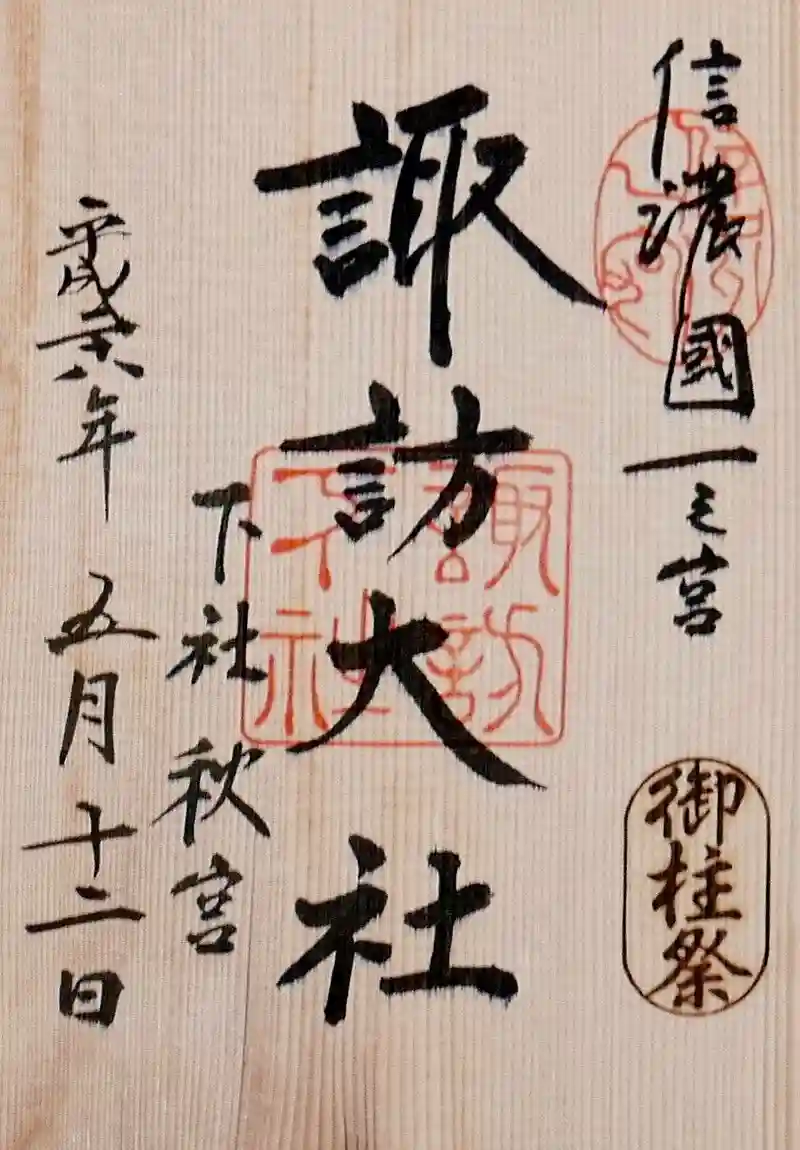 信濃國一之宮
御柱祭
諏訪大社
諏訪
下社
下社 秋宮
平成廿八年 五月十二日